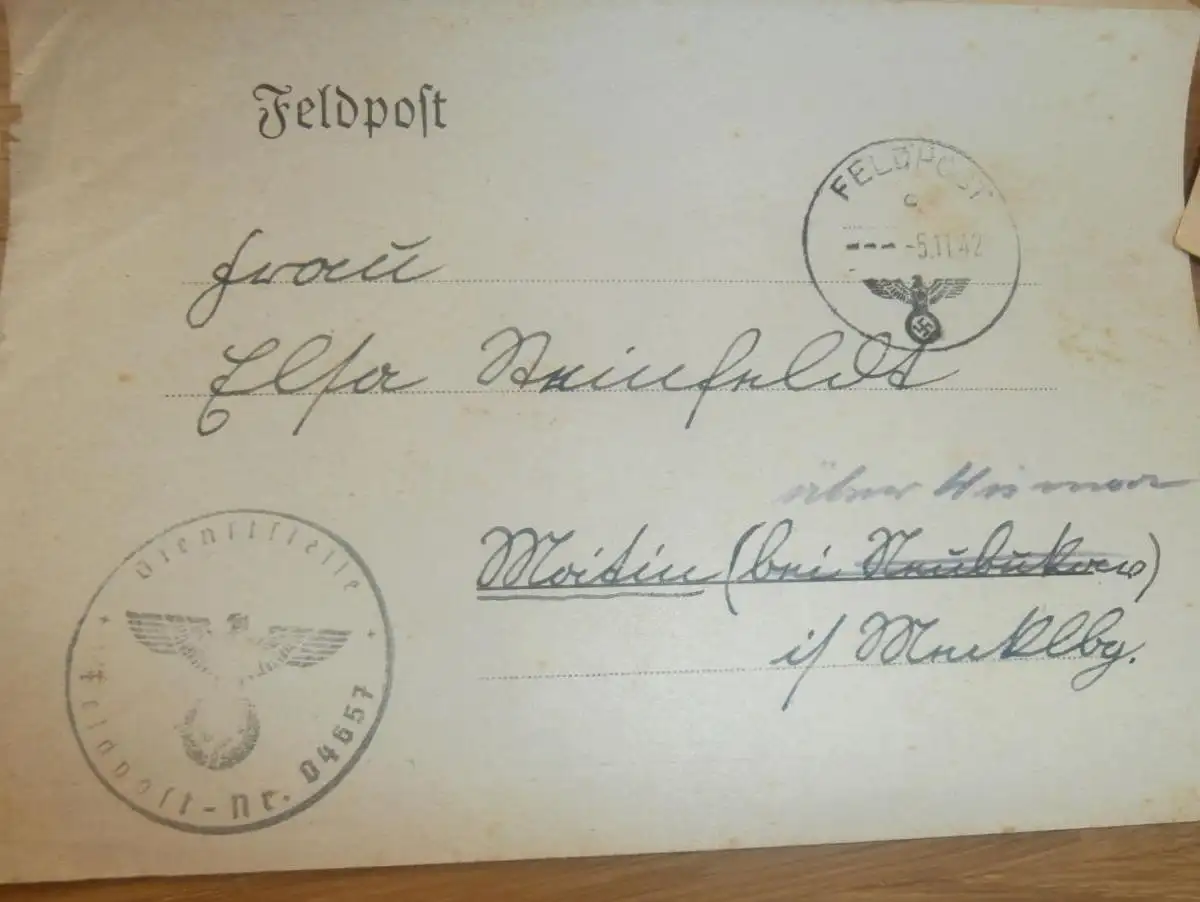 Feldpost
FELDPOST
c
-5.11.42
Frau
Elsa Steinfeldt
über Wismar
Moitin (bei Neubukow)
i/ Mecklbg.
Dienststelle
Feldpost-Nr. 04657